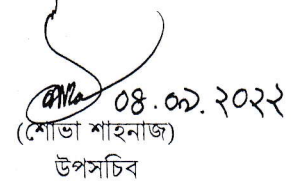 ০৪.০৯.২০২২
(শোভা শাহনাজ)
উপসচিব